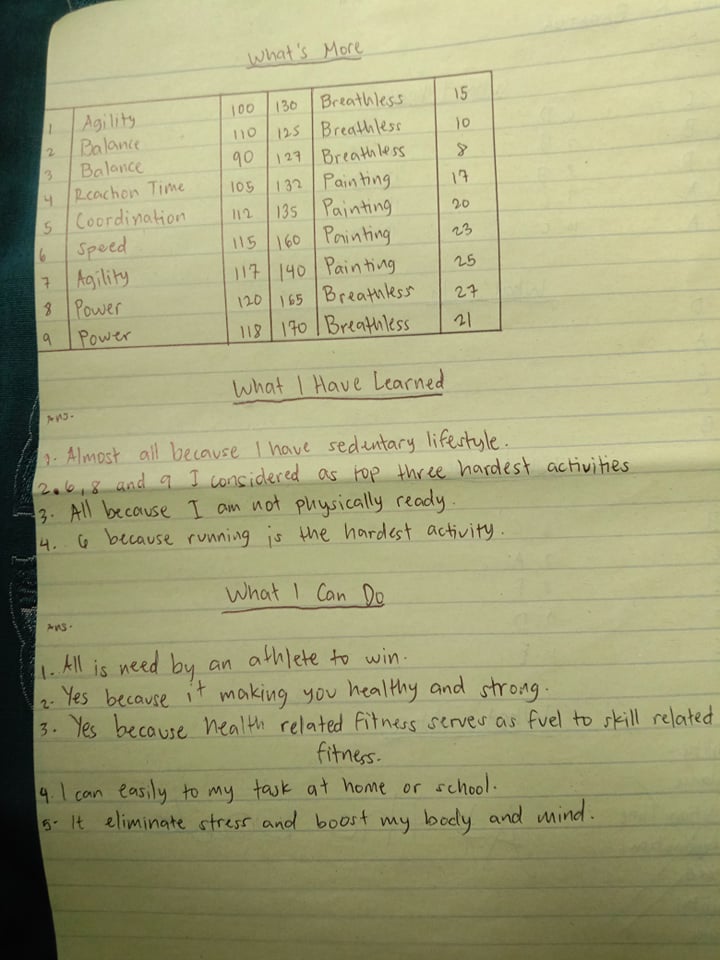 What's More
1 Agility 100 130 Breathless 15
2 Balance 110 125 Breathless 10
3 Balance 90 127 Breathless 8
4 Reaction Time 105 132 Painting 17
5 Coordination 112 135 Painting 20
6 Speed 115 160 Painting 23
7 Agility 117 140 Painting 25
8 Power 120 165 Breathless 27
9 Power 118 170 Breathless 21
What I Have Learned
Ans.
1. Almost all because I have sedentary lifestyle.
2. 6, 8 and 9 I considered as top three hardest activities
3. All because I am not physically ready.
4. 6 because running is the hardest activity.
What I Can Do
Ans.
1. All is need by an athlete to win.
2. Yes because it making you healthy and strong.
3. Yes because health related fitness serves as fuel to skill related
fitness.
4. I can easily to my task at home or school.
5- It eliminate stress and boost my body and mind.